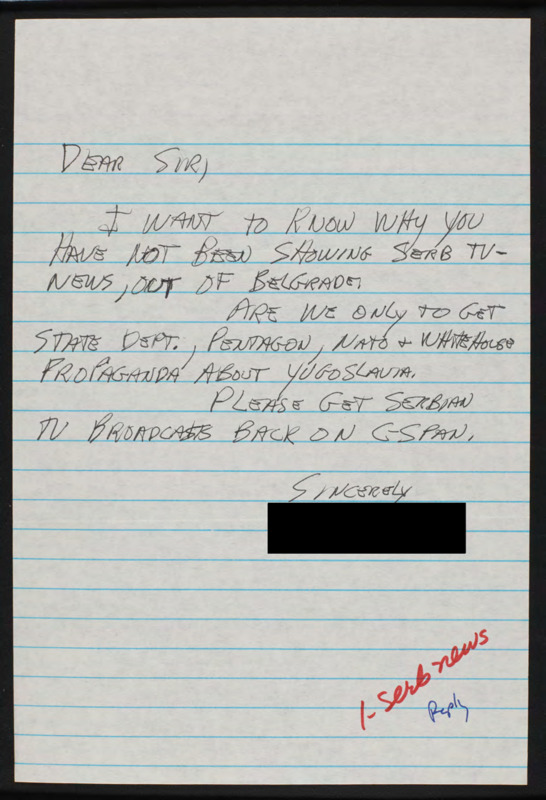 DEAR SIR,
I WANT TO KNOW WHY YOU
HAVE NOT BEEN SHOWING SERB TV-
NEWS, OUT OF BELGRADE.
ARE WE ONLY TO GET
STATE DEPT., PENTAGON, NATO + WHITEHOUSE
PROPAGANDA ABOUT YUGOSLAVIA.
PLEASE GET SERBIAN
TV BROADCASTS BACK ON C-SPAN.
SINCERELY
1- Serb news
Reply